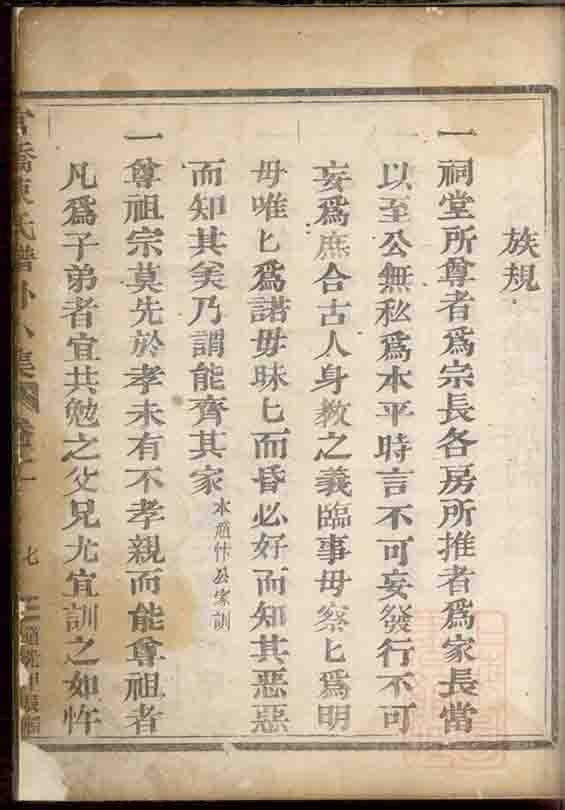 族規
一祠堂所尊者爲宗長各房所推者爲家長當
以至公無私爲本平時言不可妄發行不可
妄爲庶合古人身教之義臨事毋察匕爲明
毋唯匕爲諾毋昧匕而昏必好而知其惡惡
而知其美乃謂能齊其家
一尊祖宗莫先於孝未有不孝親而能尊祖者
凡爲子弟者宜共勉之父兄尤宜訓之如忤
氏譜外
集